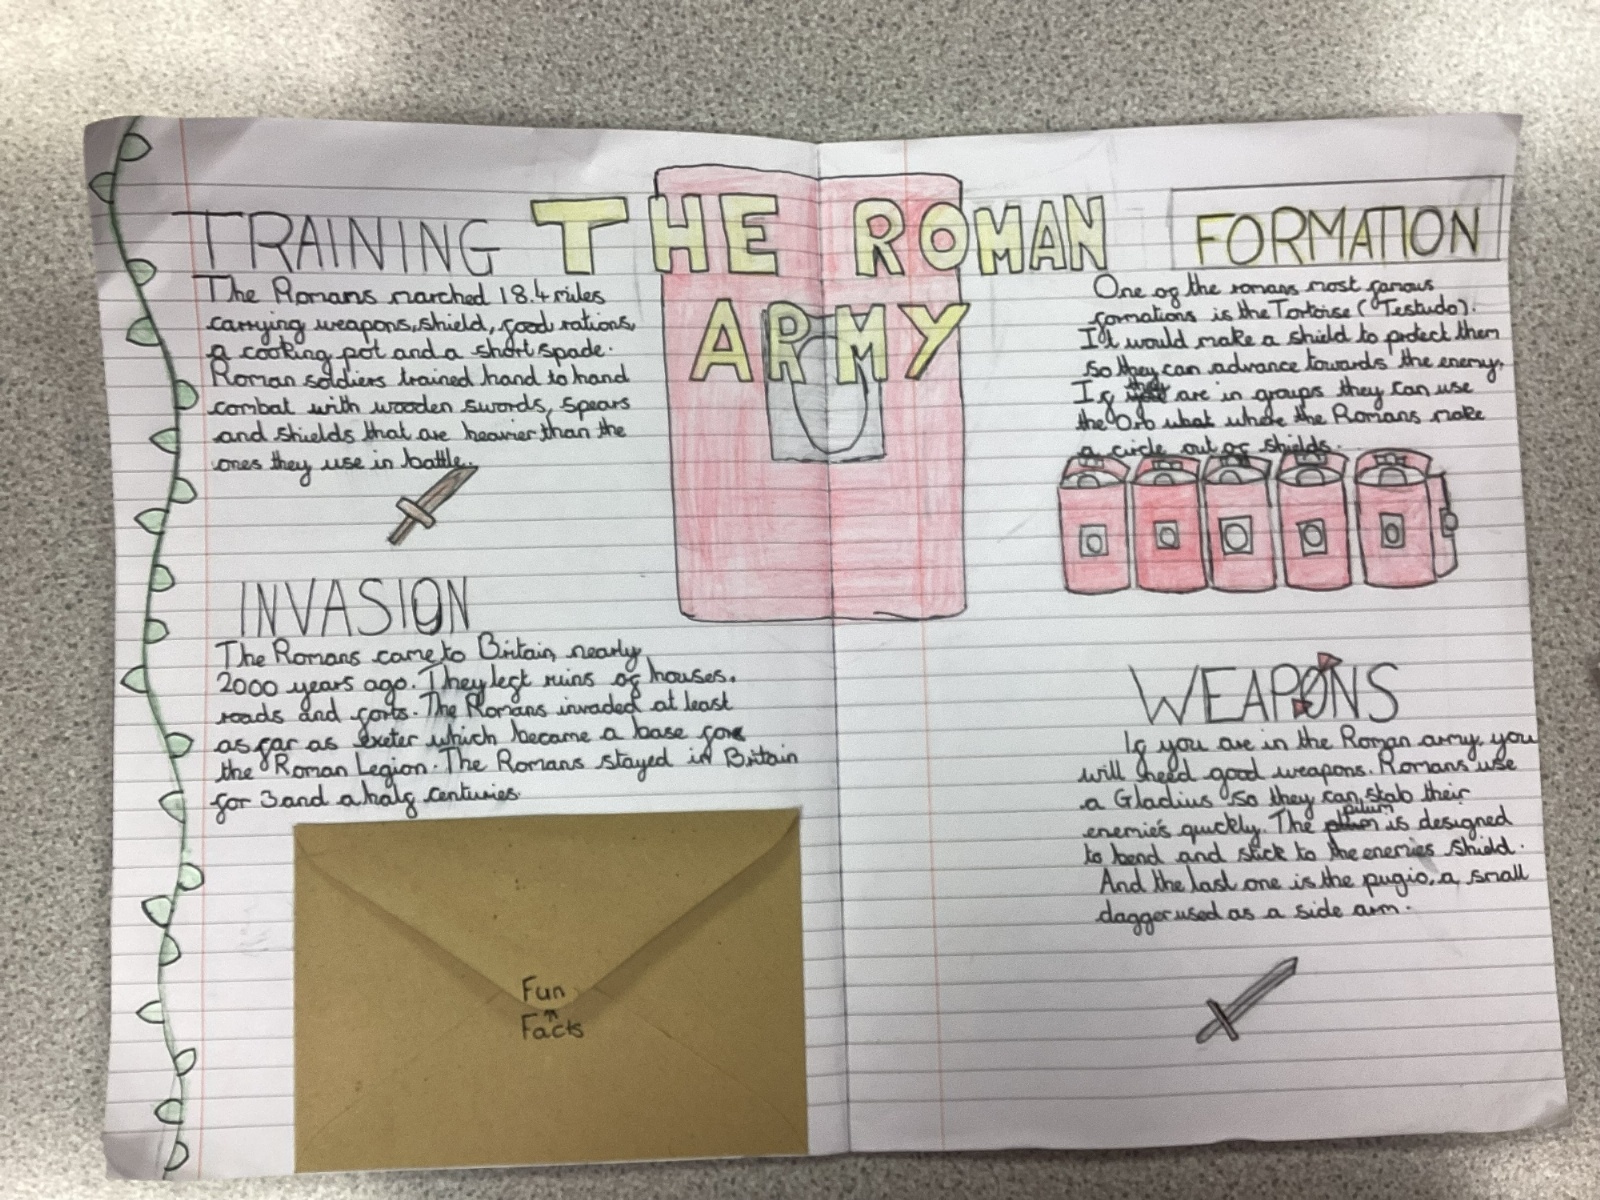 THE ROMAN
ARMY
TRAINING
The Romans marched 18.4 miles
carrying weapons, shield, food rations,
a cooking pot and a short spade.
Roman soldiers trained hand to hand
combat with wooden swords, spears
and shields that are heavier than the
ones they use in battle.
INVASION
The Romans came to Britain nearly
2000 years ago. They left ruins of houses.
roads and forts. The Romans invaded at least
as far as exeter which became a base for
the Roman Legion. The Romans stayed in Britain
for 3 and a half centuries.
Fun
Facts
FORMATION
One of the romans most famous
formations is the Tortoise (Testudo).
It would make a shield to protect them
so they can advance towards the enemy.
If they are in groups they can use
the Orb what where the Romans make
a circle out of shields.
WEAPONS
If you are in the Roman army you
will need good weapons. Romans use
a Gladius so they can stab their
enemie's quickly. The pilum is designed
to bend and stick to the enemies shield.
And the last one is the pugio, a small
dagger used as a side arm.